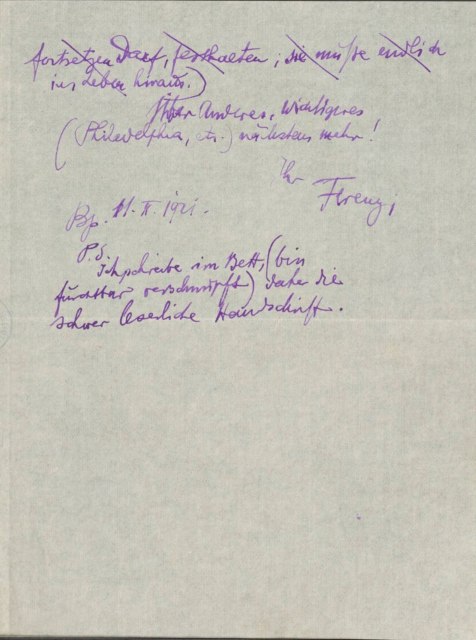 fortsetzen darf, festhalten; sie müße endlich
ins Leben hinaus.)
Über Anderes, Wichtigeres
(Philadelphia, etc.) nächstens mehr!
Ihr
Ferenczi
Bp. 11. II. 1921.
P.S.
Ich schreibe im Bett, (bin
furchtbar verschnupft) daher die
schwer leserliche Handschrift.